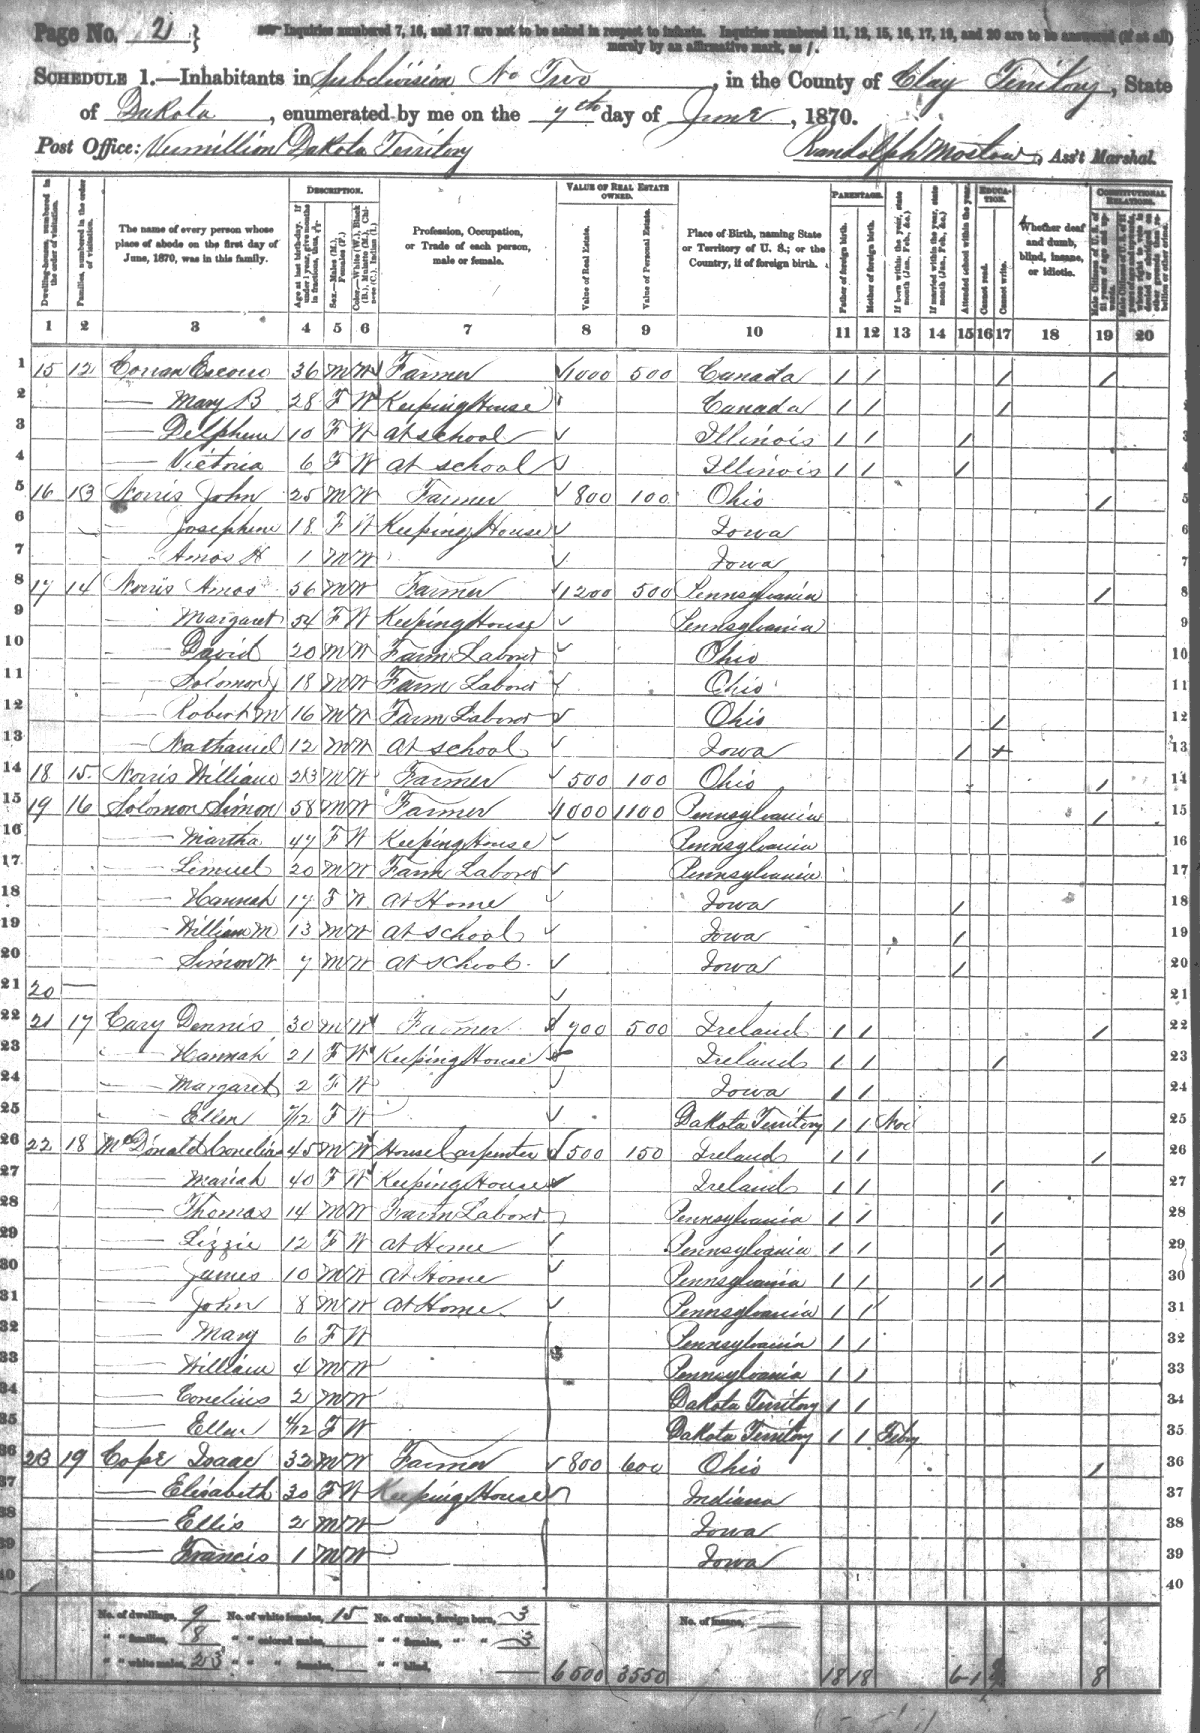 Page No. 2 }
Inquiries numbered 7, 16, and 17 are not to be asked in respect to infants. Inquiries numbered 11, 12, 15, 16, 17, 19, and 20 are to be answered (if at all)
merely by an affirmative mark, as /.
SCHEDULE 1.—Inhabitants in Subdivision No Two, in the County of Clay Territory, State
of Dakota, enumerated by me on the 7th day of June, 1870.
Post Office: Vermillion Dakota Territory Randolph, Ass't Marshal.
DESCRIPTION. VALUE OF REAL ESTATE OWNED. PARENTAGE. EDUCATION. CONSTITUTIONAL RELATIONS.
Dwelling-houses, numbered in the order of visitation.
Families, numbered in the order of visitation.
The name of every person whose place of abode on the first day of June, 1870, was in this family.
Age at last birth-day. If under 1 year, give months in fractions, thus, 3/12
Sex.—Males (M.), Females (F.)
Color.—White (W.), Black (B.), Mulatto (M.), Chinese (C.), Indian (I.)
Profession, Occupation, or Trade of each person, male or female.
Value of Real Estate.
Value of Personal Estate.
Place of Birth, naming State or Territory of U. S.; or the Country, if of foreign birth.
Father of foreign birth.
Mother of foreign birth.
If born within the year, state month (Jan., Feb., &c.)
If married within the year, state month (Jan., Feb., &c.)
Attended school within the year.
Cannot read.
Cannot write.
Whether deaf and dumb, blind, insane, or idiotic.
Male Citizens of U. S. of 21 years of age and upwards.
1 2 3 4 5 6 7 8 9 10 11 12 13 14 15 16 17 18 19 20
1 15 12 36 M W Farmer 1000 500 Canada / / / / 1
2 — Mary B 28 F W Keeping House Canada / / / 2
3 — Delphine 10 F W At school Illinois / / / 3
4 — Victoria 6 F W At school Illinois / / / 4
5 16 13 Norris John 25 M W Farmer 800 100 Ohio / 5
6 — Josephine 18 F W Keeping House Iowa 6
7 — Amos H 1 M W Iowa 7
8 17 14 Norris Amos 56 M W Farmer 1200 500 Pennsylvania / 8
9 — Margaret 54 F W Keeping House Pennsylvania 9
10 — David 20 M W Farm Laborer Ohio 10
11 — Solomon 18 M W Farm Laborer Ohio 11
12 — Robert M 16 M W Farm Laborer Ohio / 12
13 — Nathaniel 12 M W At school Iowa / + 13
14 18 15 Norris William 23 M W Farmer 500 100 Ohio / 14
15 19 16 Solomon Simon 58 M W Farmer 1000 1100 Pennsylvania / 15
16 — Martha 47 F W Keeping House Pennsylvania 16
17 — Limuel 20 M W Farm Laborer Pennsylvania 17
18 — Hannah 17 F W At Home Iowa / 18
19 — William M 13 M W At school Iowa / 19
20 — Simon W 7 M W At school Iowa / 20
21 20 — 21
22 21 17 Cary Dennis 30 M W Farmer 700 500 Ireland / / / 22
23 — Hannah 21 F W Keeping House Ireland / / / 23
24 — Margaret 2 F W Iowa / / 24
25 — Ellen 7/12 F W Dakota Territory / / Nov 25
26 22 18 McDonald Cornelius 45 M W House Carpenter 500 150 Ireland / / / 26
27 — Mariah 40 F W Keeping House Ireland / / / 27
28 — Thomas 14 M W Farm Laborer Pennsylvania / / / 28
29 — Lizzie 12 F W At Home Pennsylvania / / / 29
30 — James 10 M W At Home Pennsylvania / / / / 30
31 — John 8 M W At Home Pennsylvania / / 31
32 — Mary 6 F W Pennsylvania / / 32
33 — William 4 M W Pennsylvania / / 33
34 — Cornelius 2 M W Dakota Territory / / 34
35 — Ellen 4/12 F W Dakota Territory / / Feby 35
36 23 19 Cope Isaac 32 M W Farmer 800 600 Ohio / 36
37 — Elisabeth 30 F W Keeping House Indiana 37
38 — Ellis 2 M W Iowa 38
39 — Francis 1 M W Iowa 39
40 40
No. of dwellings, 9 No. of white females, 15 No. of males, foreign born, 3 No. of insane, —
" " families, 8 " " colored males, — " " females, " " 3
" " white males, 23 " " " females, — " " blind, —
6500 3550 18 18 6 1 8